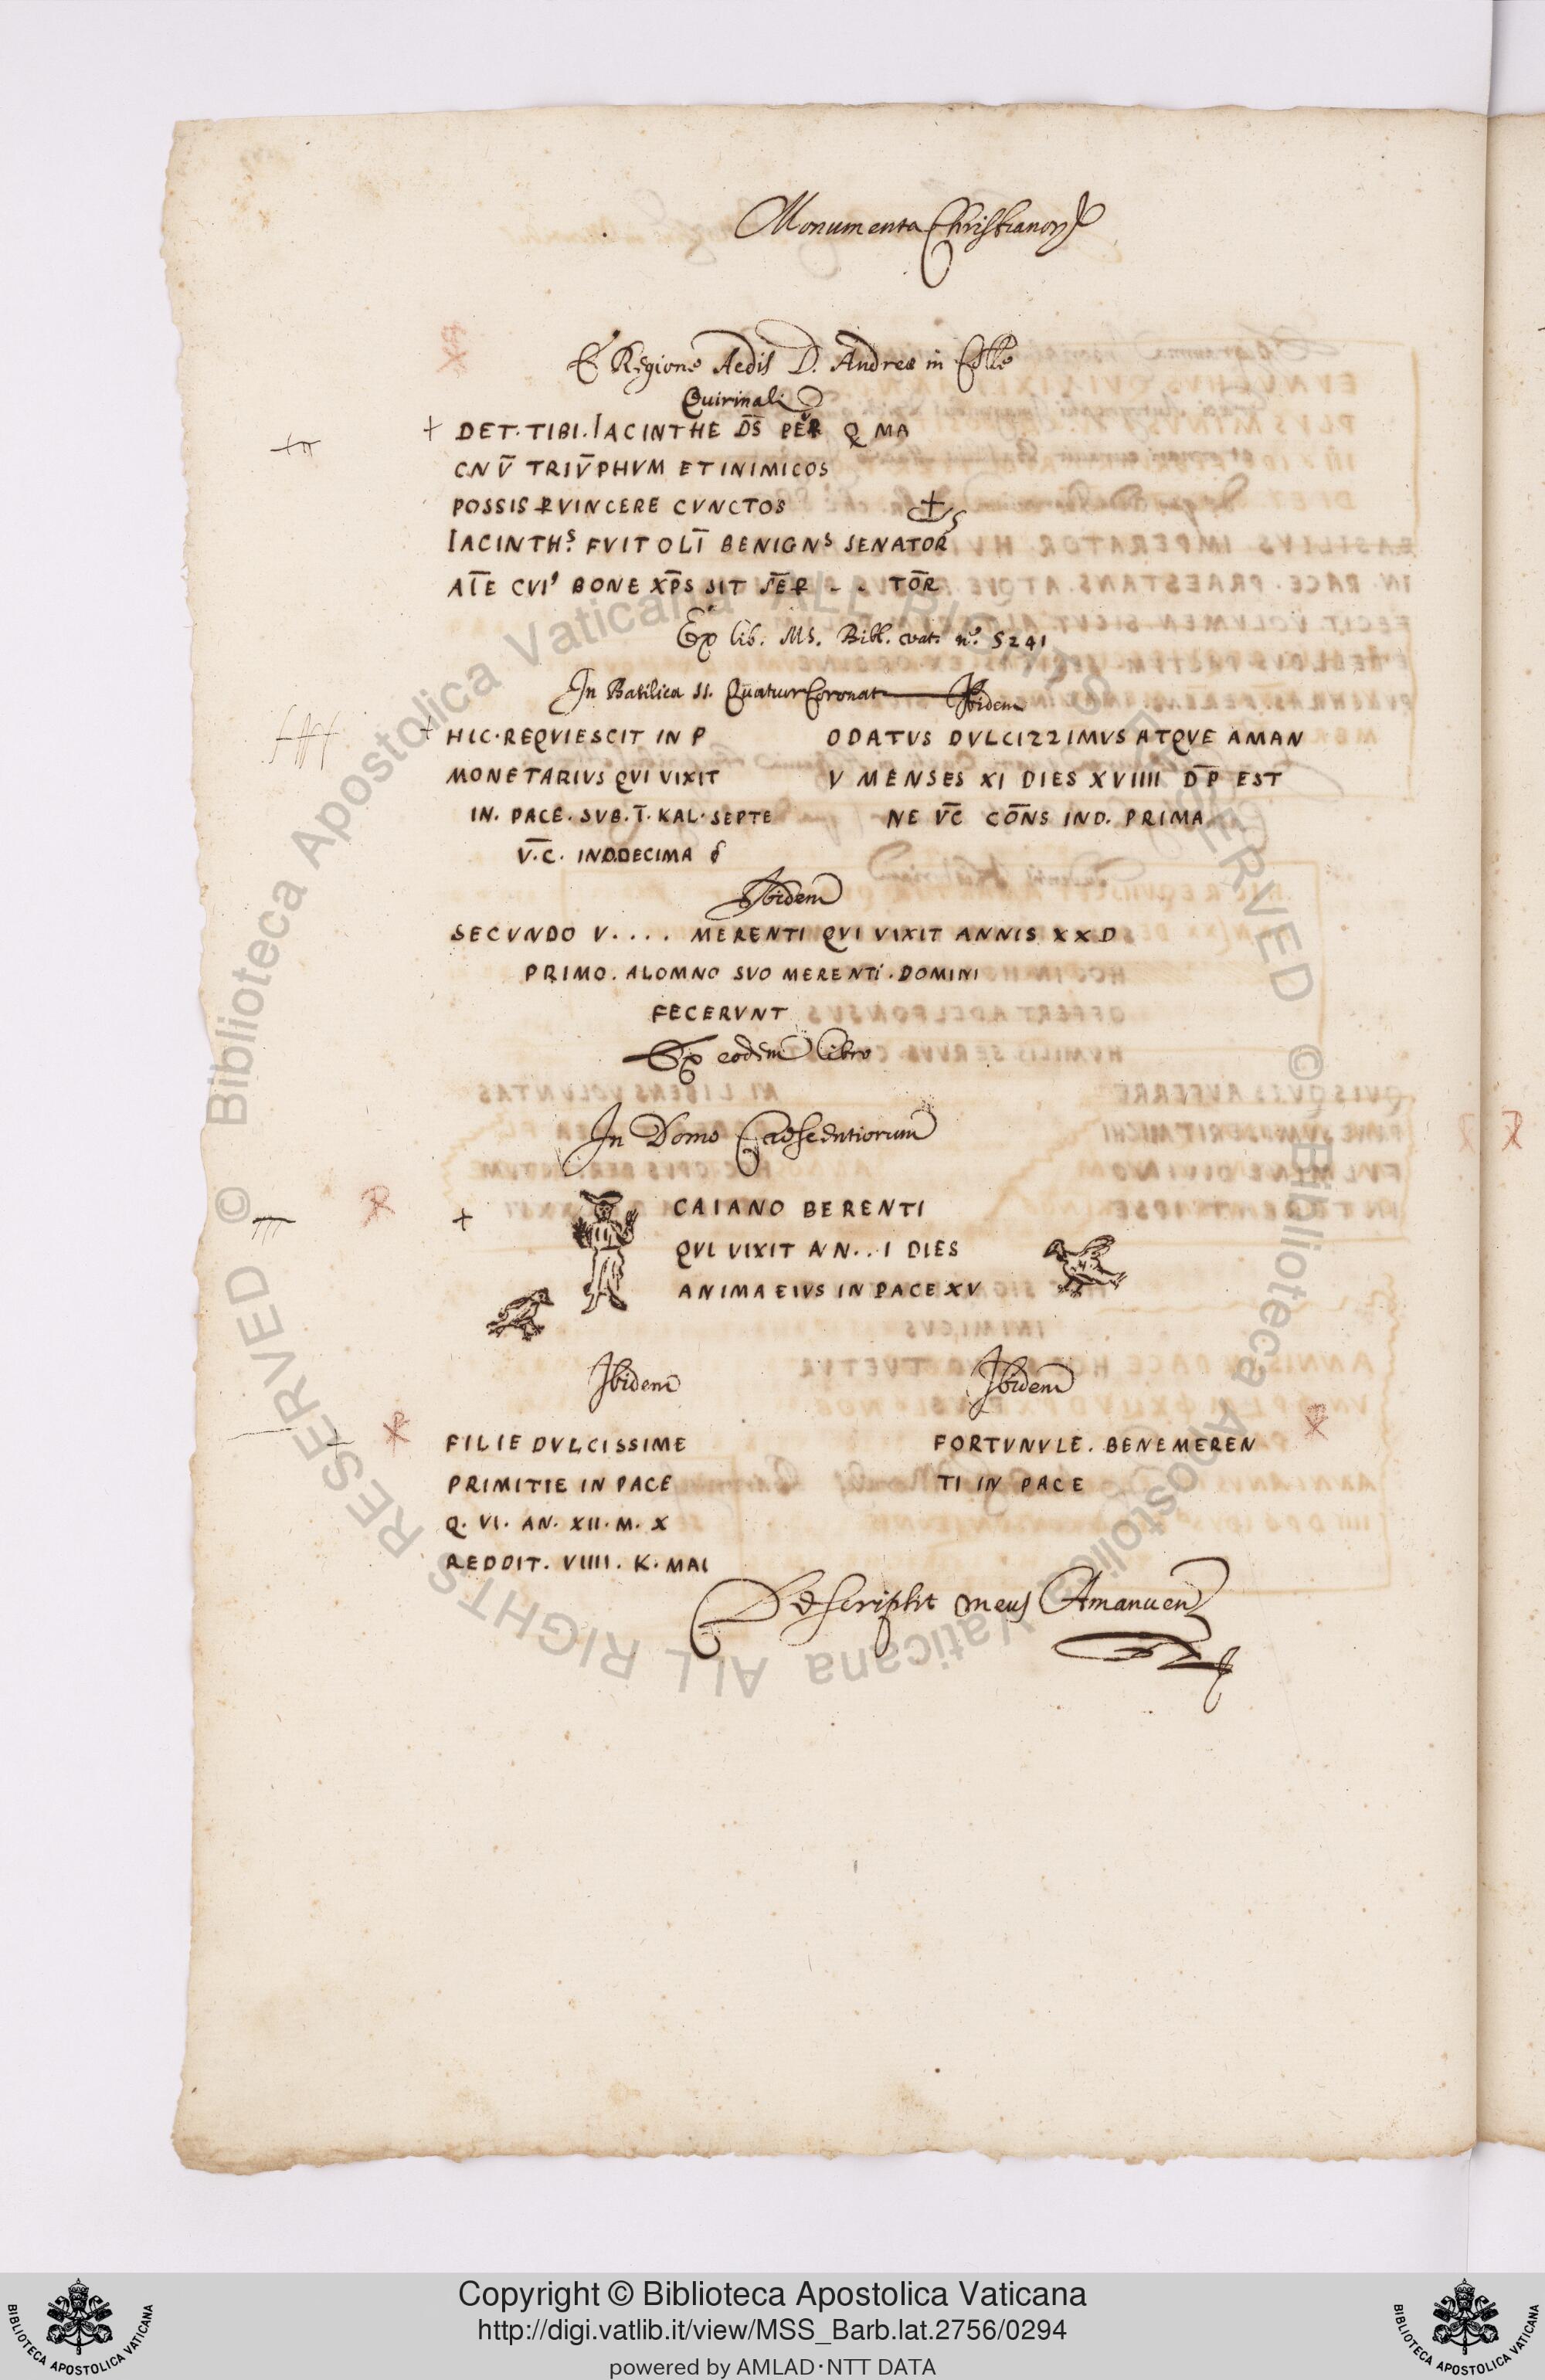 Monumenta Christianor
E Regione Aedis D. Andreæ in Colle
Quirinali
+ DET. TIBI. IACINTHE D̅S̅ PER Q MA
CN V̅ TRIV̅PHVM ET INIMICOS
POSSIS PVINCERE CVNCTOS
IACINTHˢ. FVIT OLI̅ BENIGNˢ SENATOR
AI̅E CVI⁹ BONE XP̅S SIT SEP̅ - - TO̅R
Ex lib. MS. Bibl. vat. n.º 5241
In Basilica SS. Quatuor Coronat Ibidem
+ HIC. REQVIESCIT IN P ODATVS DVLCIZZIMVS ATQVE AMAN
MONETARIVS QVI VIXIT V MENSES XI DIES XVIIII D̅P̅ EST
IN. PACE. SVB. I̅. KAL. SEPTE NE V̅C̅ CO̅NS IND. PRIMA
V̅.C̅. INDDECIMA
Ibidem
SECVNDO V . . . . MERENTI QVI VIXIT ANNIS XXD
PRIMO. ALOMNO SVO MERENTI. DOMINI
FECERVNT
Ex eodem libro
In Domo Caesentiorum
+ CAIANO BERENTI
QVI VIXIT AN . . I DIES
ANIMA EIVS IN PACE XV
Ibidem
FILIE DVLCISSIME
PRIMITIE IN PACE
Q. VI. AN. XII. M. X
REDDIT. VIIII. K. MAI
Ibidem
FORTVNVLE. BENEMEREN
TI IN PACE
Descripsit meus Amanuen
© Biblioteca Apostolica Vaticana ALL RIGHTS RESERVED © Biblioteca Apostolica Vaticana ALL RIGHTS RESERVED
Copyright © Biblioteca Apostolica Vaticana
http://digi.vatlib.it/view/MSS_Barb.lat.2756/0294
powered by AMLAD·NTT DATA
BIBLIOTECA APOSTOLICA VATICANA
BIBLIOTECA APOSTOLICA VATICANA